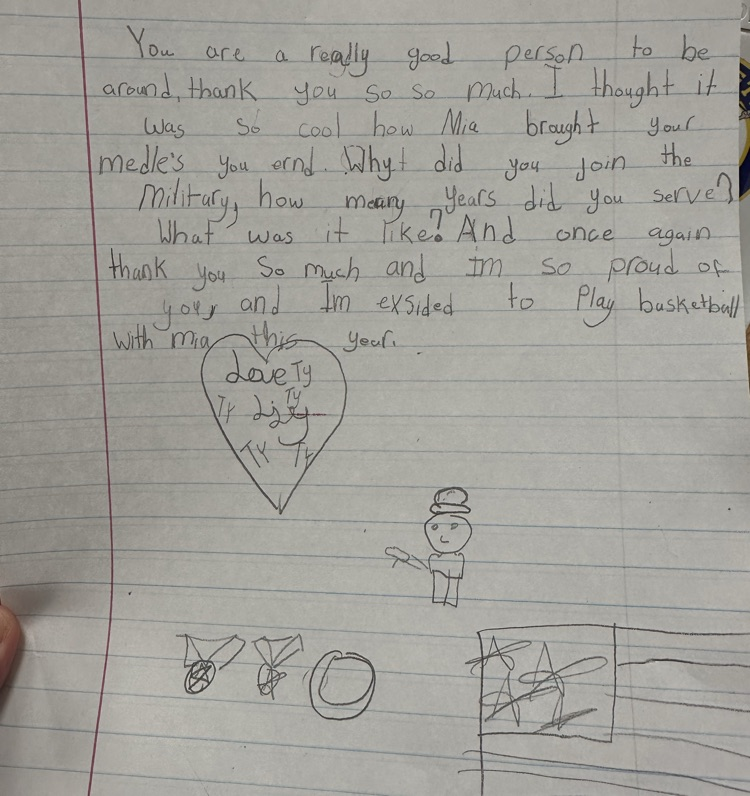 You are a really good person to be
around, thank you so so much. I thought it
was so cool how Mia brought your
medle's you ernd. Whyt did you join the
military, how meany years did you serve?
What was it like? And once again
thank you so much and im so proud of
you, and Im exsided to Play basketball
with mia this year.
Love Ty
Ty
Ty Lizy
Ty Ty